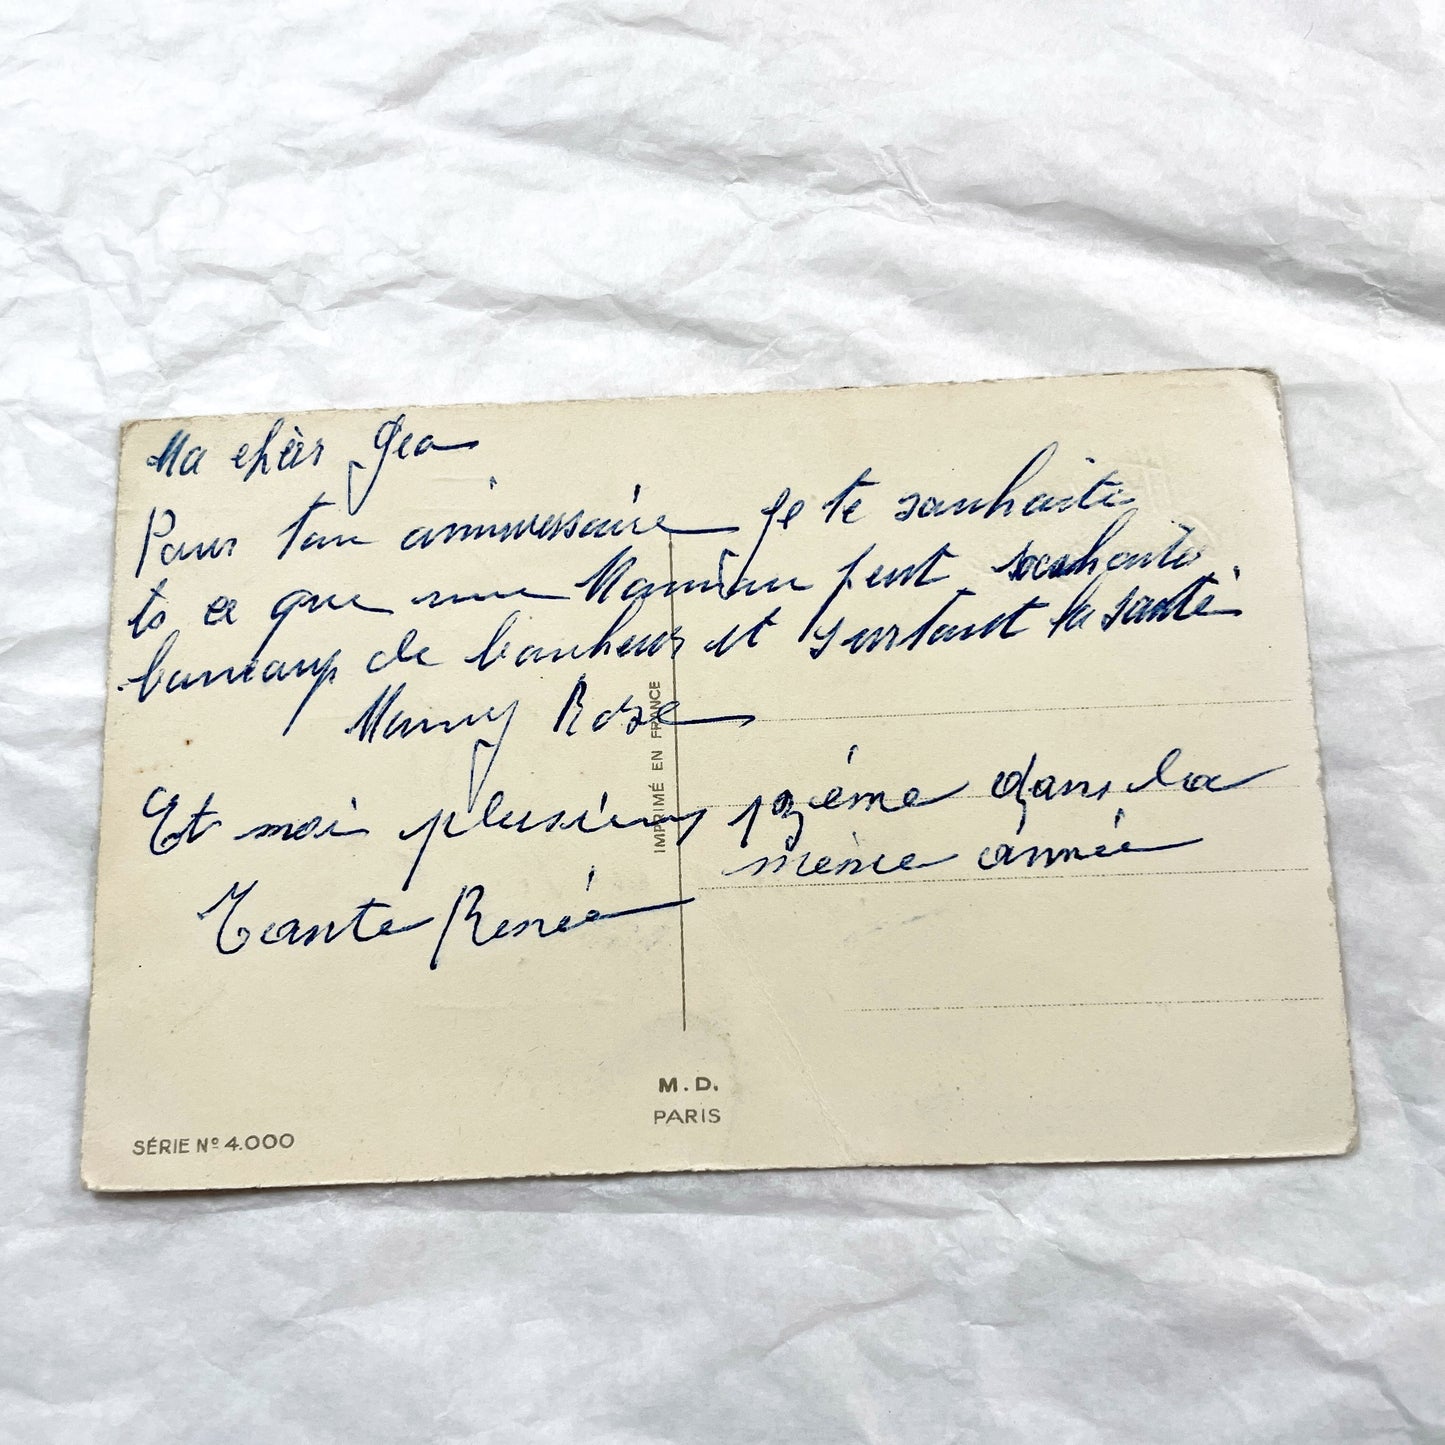 Ma chère Geo
Pour ton anniversaire je te souhaite
to ce que une Maman peut souhaite
baucaup de bonheur et surtout la santé.
Mamy Rose
Et moi plusieurs zième dans la
même année
Tante Renée
IMPRIMÉ EN FRANCE
M.D.
PARIS
SÉRIE Nº 4.000